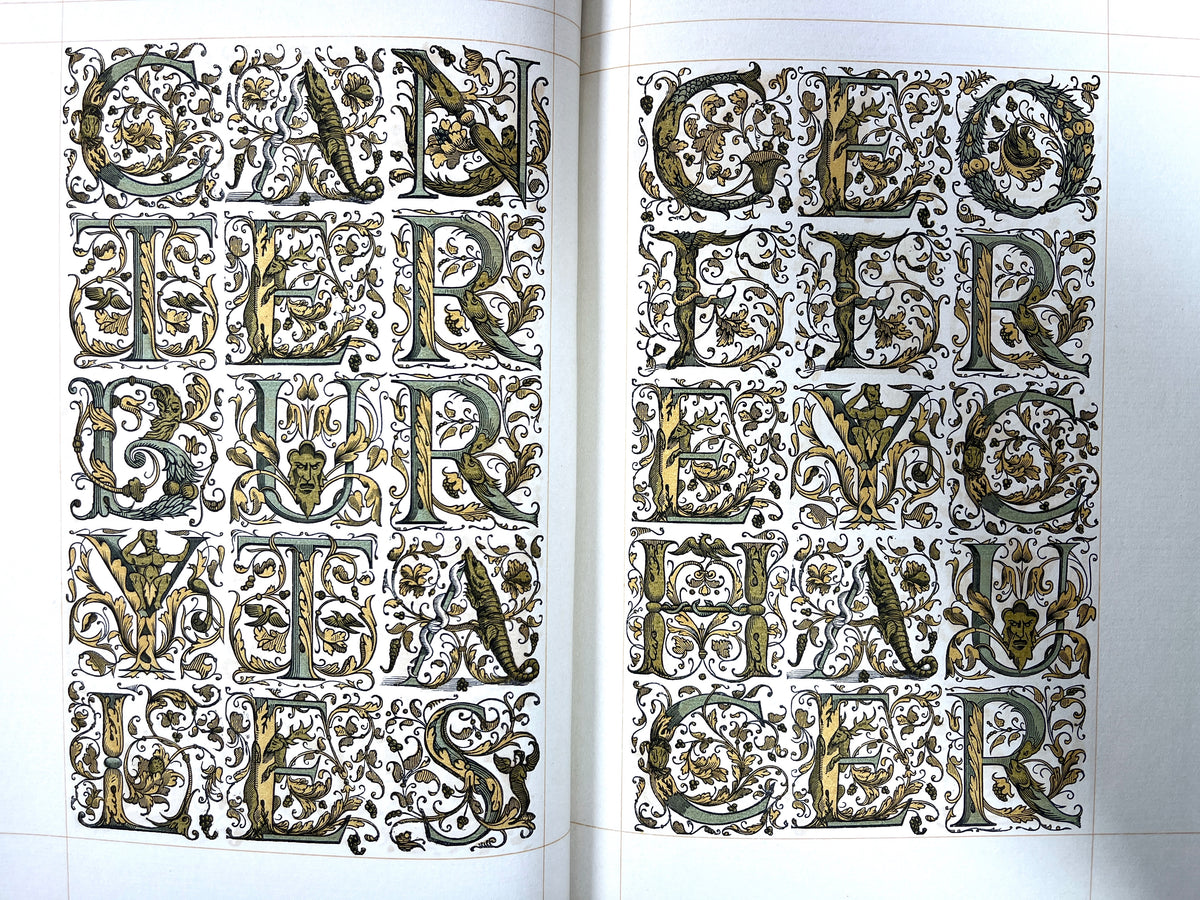 CAN
TER
BUR
YTA
LES
GEO
FFR
EYC
HAU
CER